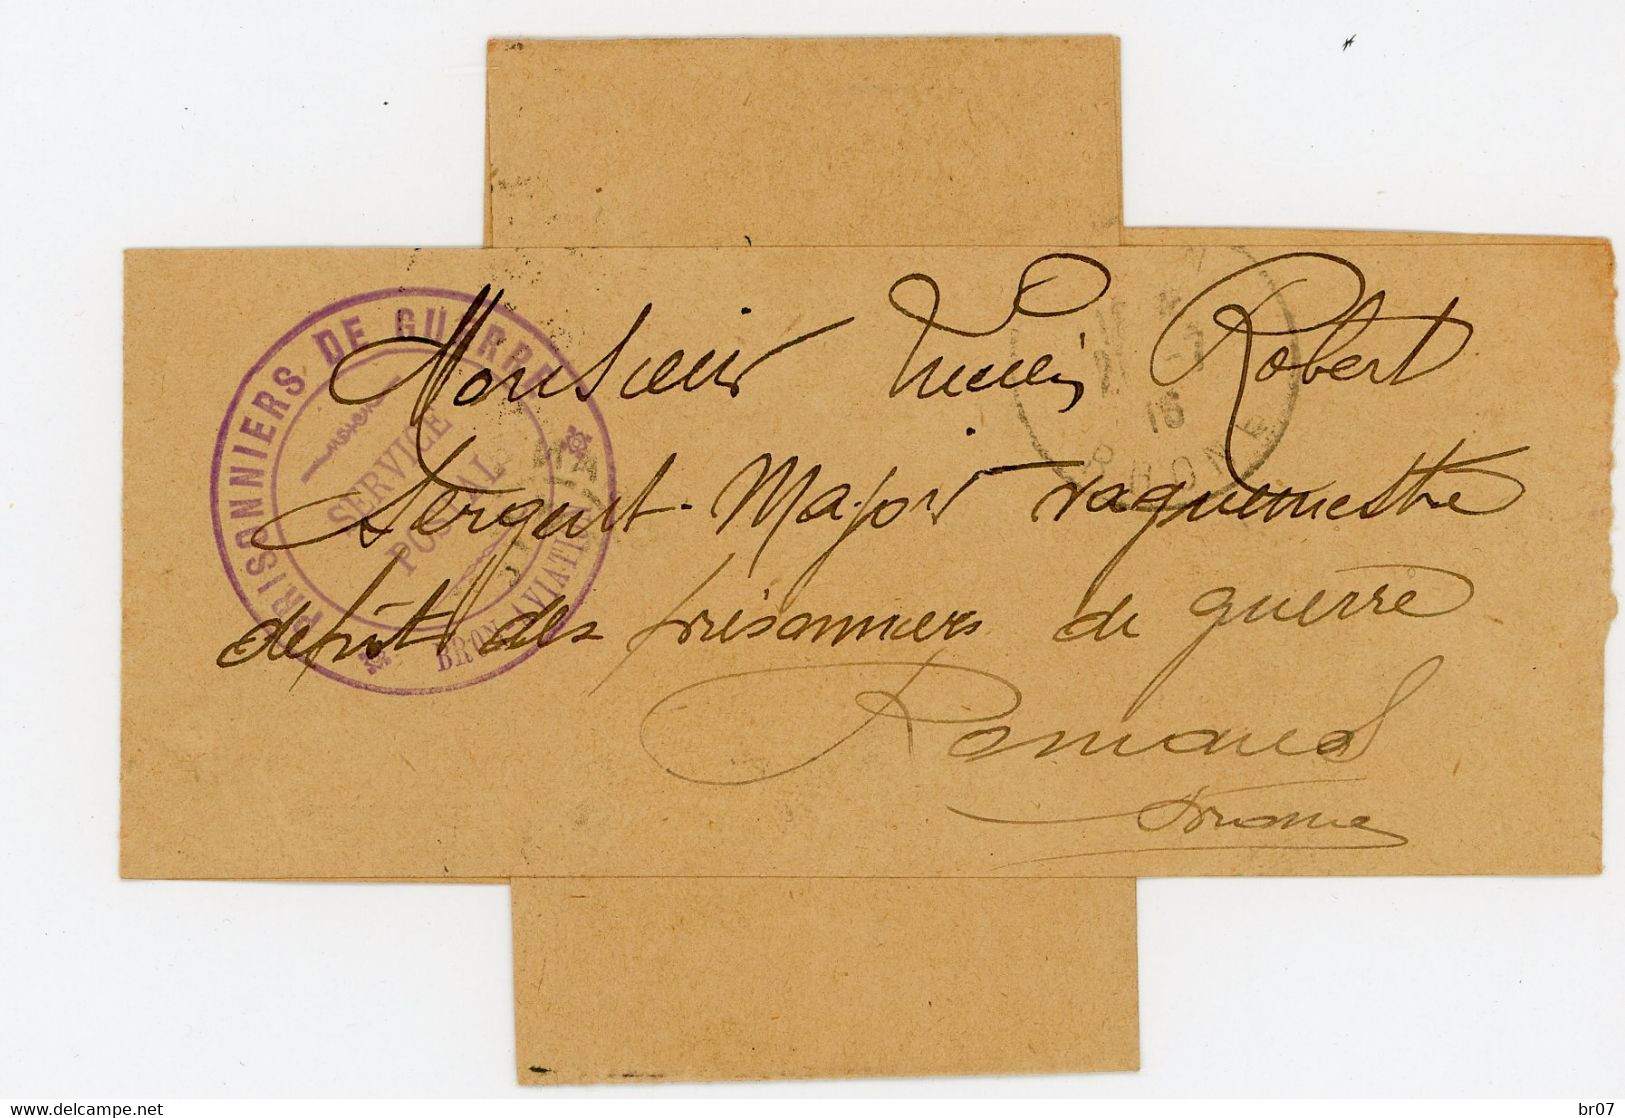 PRISONNIERS DE GUERRE
SERVICE
POSTAL
BRON AVIATION
16
RHONE
Monsieur Lucien Robert
Sergent-Major vaguemestre
depôt des prisonniers de guerre
Romans
Drôme
www.delcampe.net
br07